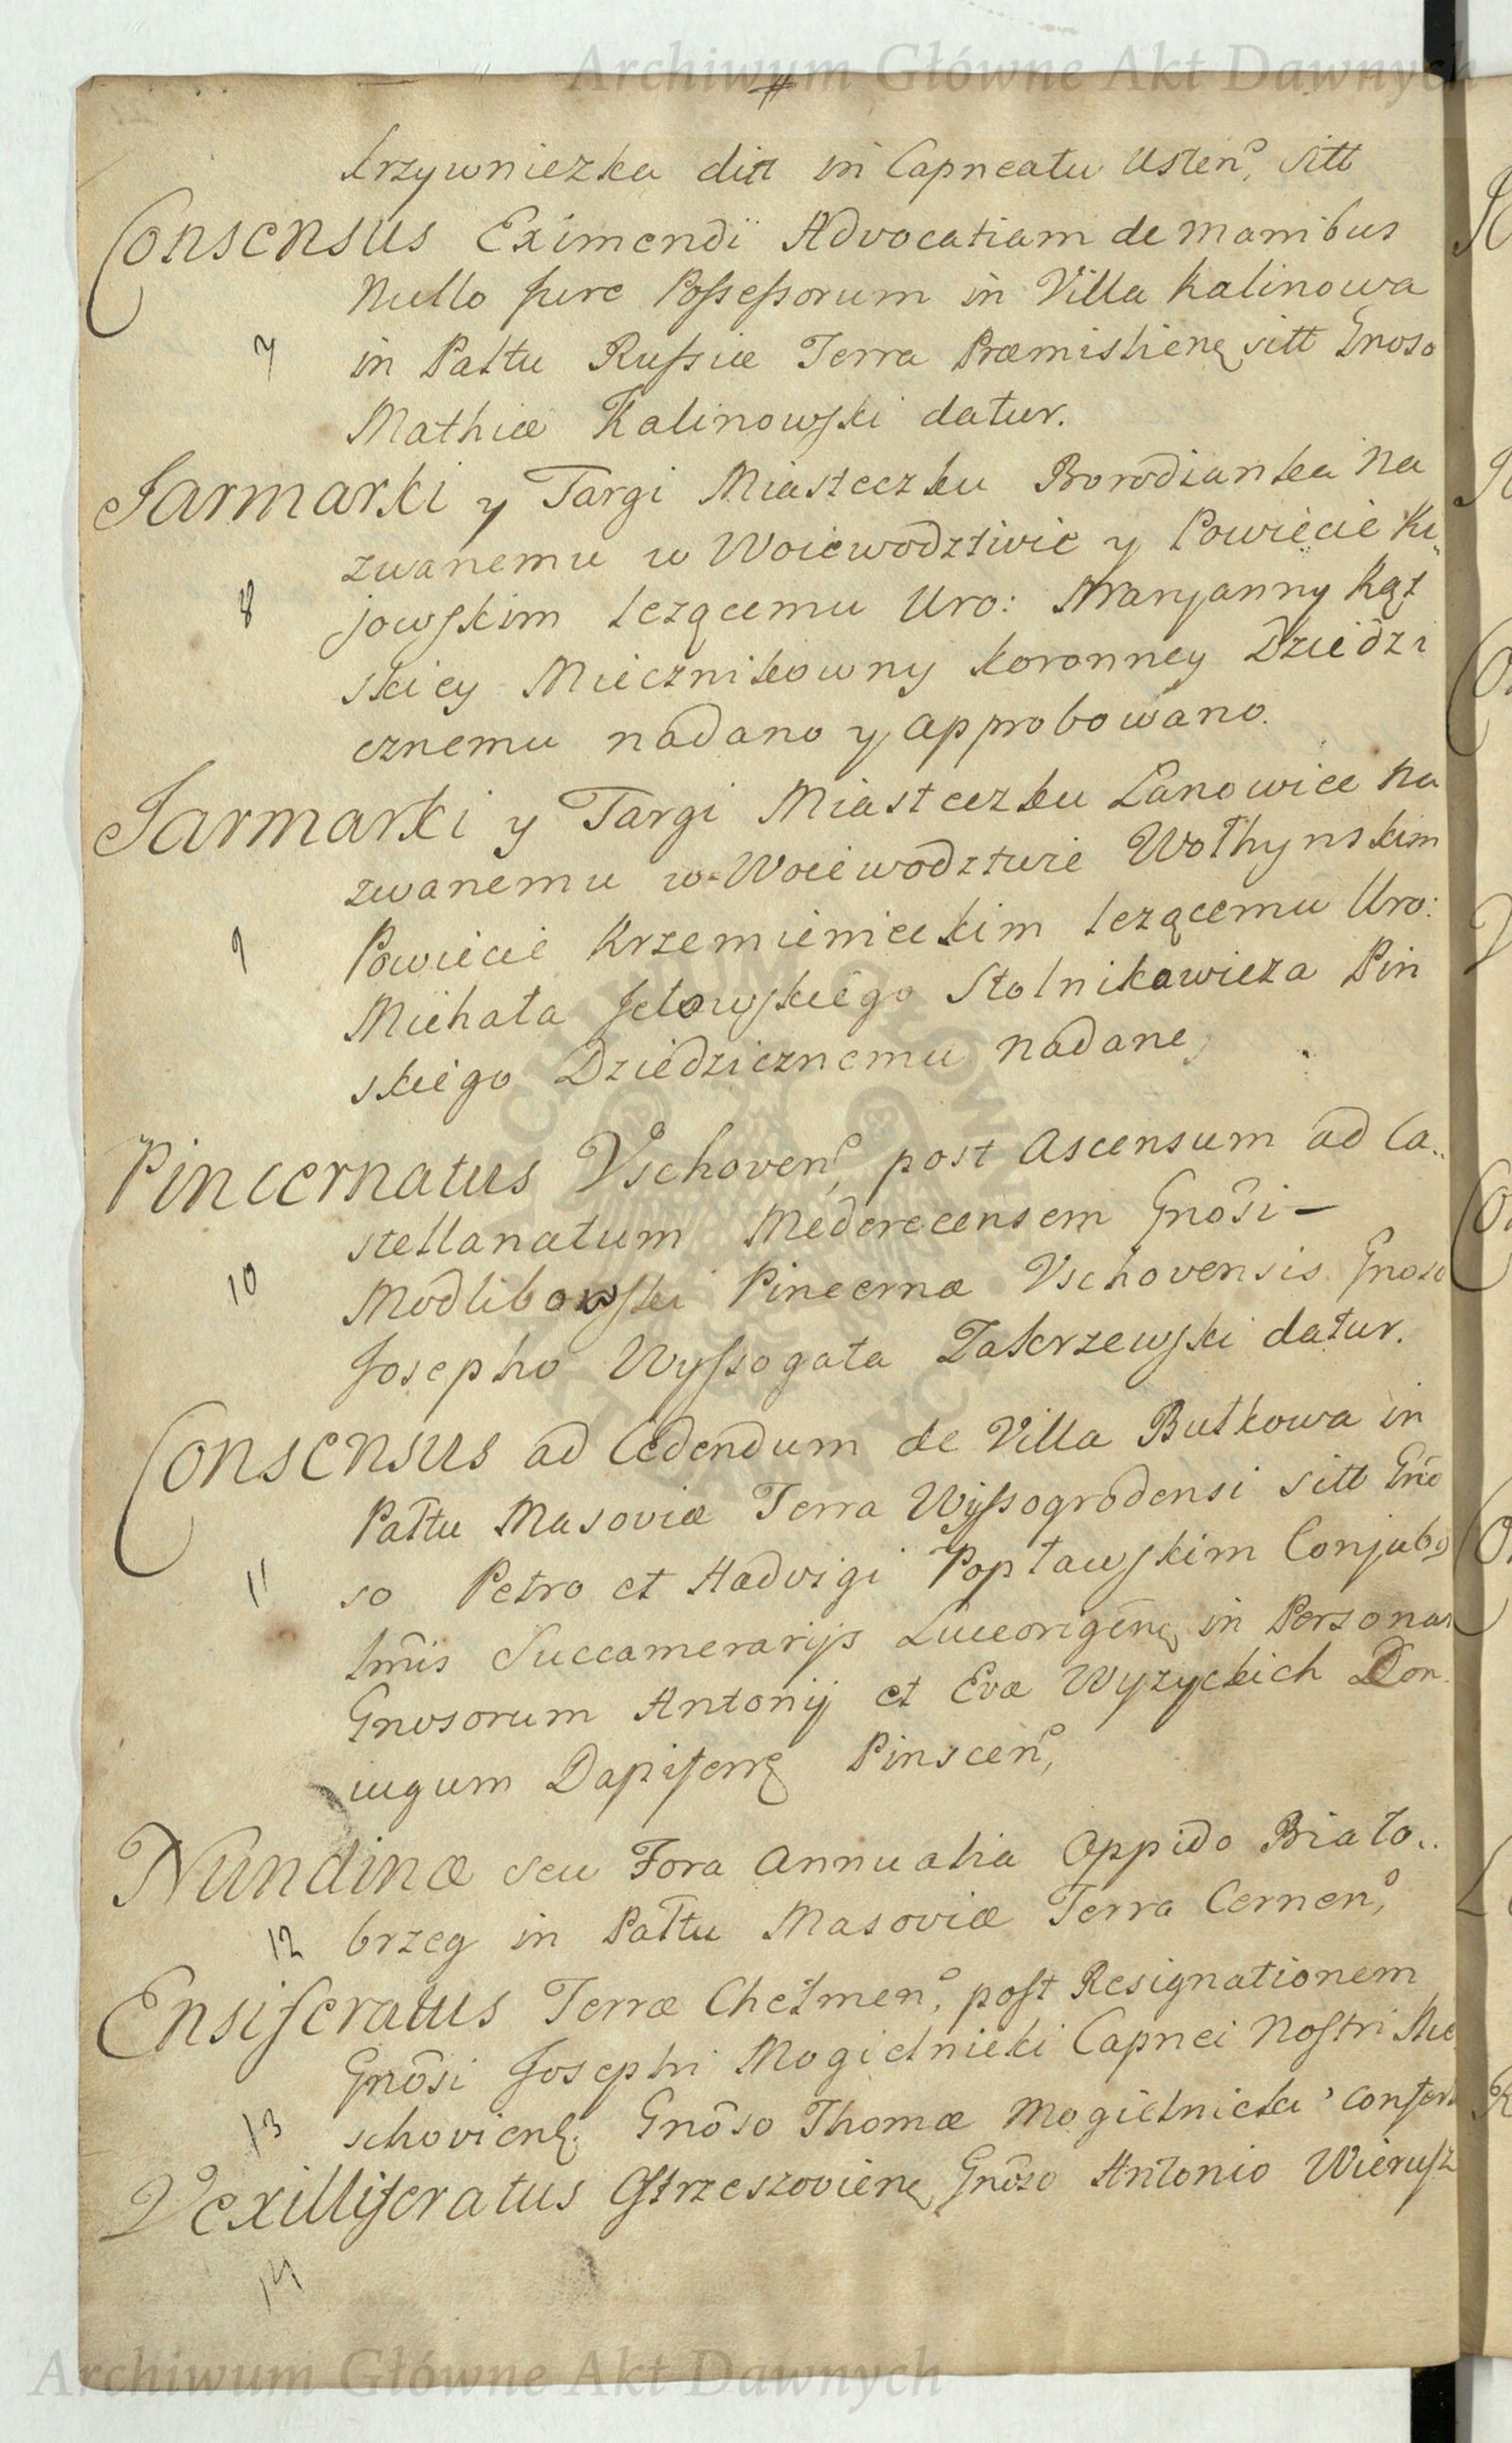 Archiwum Główne Akt Dawnych
#
krzywniezka dit in Capneatu Usten, sitt
Consensus Eximendi Advocatiam de manibus
Nullo Jure Possessorum in Villa Kalinowa
7 in Pałtu Russiæ Terra Præmislien, sitt Gnoso
Mathiæ Kalinowski datur.
Jarmarki y Targi Miasteczku Borodianka na
zwanemu w Woiewodztwie y Powiecie Ki
8 jowskim lezącemu Uro: Maryanny Kąt
skiey Miecznikowny koronney Dziedzi
cznemu nadano y approbowano.
Jarmarki y Targi Miasteczku Lanowice na
zwanemu w Woiewodztwie Wołhynskim
9 Powiecie Krzemienieckim lezącemu Uro:
Michała Jełowskiego Stolnikawicza Pin
skiego Dziedzicznemu nadane,
Pincernatus Vschoven, post Ascensum ad Ca..
stellanatum Mederecensem Gnosi –
10 Modlibowski Pincernæ Vschovensis Gnoso
Josepho Wyssogata Zakrzewski datur.
Consensus ad Cedendum de Villa Butkowa in
Pałtu Masoviæ Terra Wyssogrodensi sitt Gno
11 so Petro et Hadvigi Popławskim Conjubg
lmis Succamerarijs Luceorigen, in Personas
Gnosorum Antonij et Evæ Wyzyckich Con
iugum Dapiferr Pinscen,
Nundinæ seu Fora Annualia Oppido Biało..
12 brzeg in Pałtu Masoviæ Terra Cernen,
Ensiferatus Terræ Chełmen, post Resignationem
Gnosi Josephi Mogielnicki Capnei Nostri Me
13 schovien. Gnoso Thomæ Mogielnicki confert
Vexilliferatus Ostrzeszovien, Gnoso Antonio Wierusz
14
Archiwum Główne Akt Dawnych